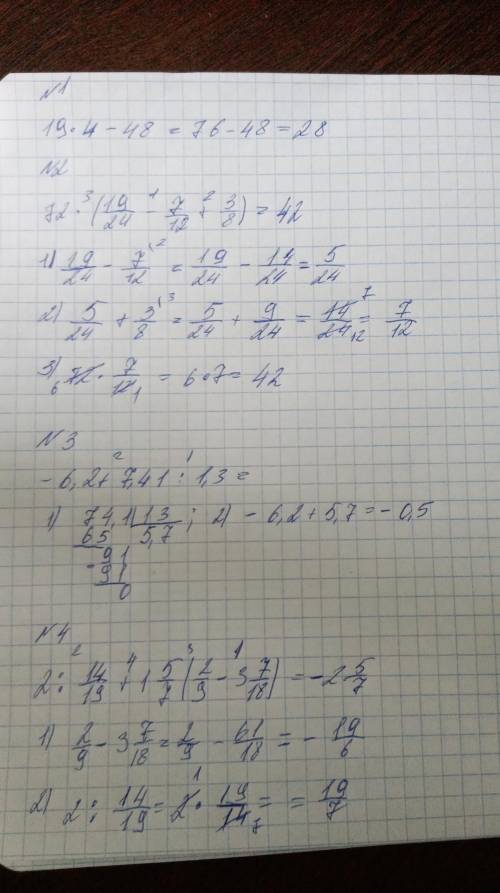 N1
19·4 - 48 = 76 - 48 = 28
N2
72 ·³ (19/24 -¹ 7/12 +² 3/8) = 42
1) 19/24 - 7/12 ⁽² = 19/24 - 14/24 = 5/24
2) 5/24 + 3/8 ⁽³ = 5/24 + 9/24 = 14/24 7 12 = 7/12
3) 6 72 · 7/12 1 = 6·7 = 42
N3
- 6,2 +² 7,41 :¹ 1,3 =
1) 74,1 | 13 ; 2) - 6,2 + 5,7 = - 0,5
65 5,7
- 91
91
0
N4
2 :² 14/19 +⁴ 1 5/7 ³ (2/9 -¹ 3 7/18) = -2 5/7
1) 2/9 - 3 7/18 = 2/9 - 61/18 = - 19/6
2) 2 : 14/19 = 2 1 · 19/14 7 = = 19/7